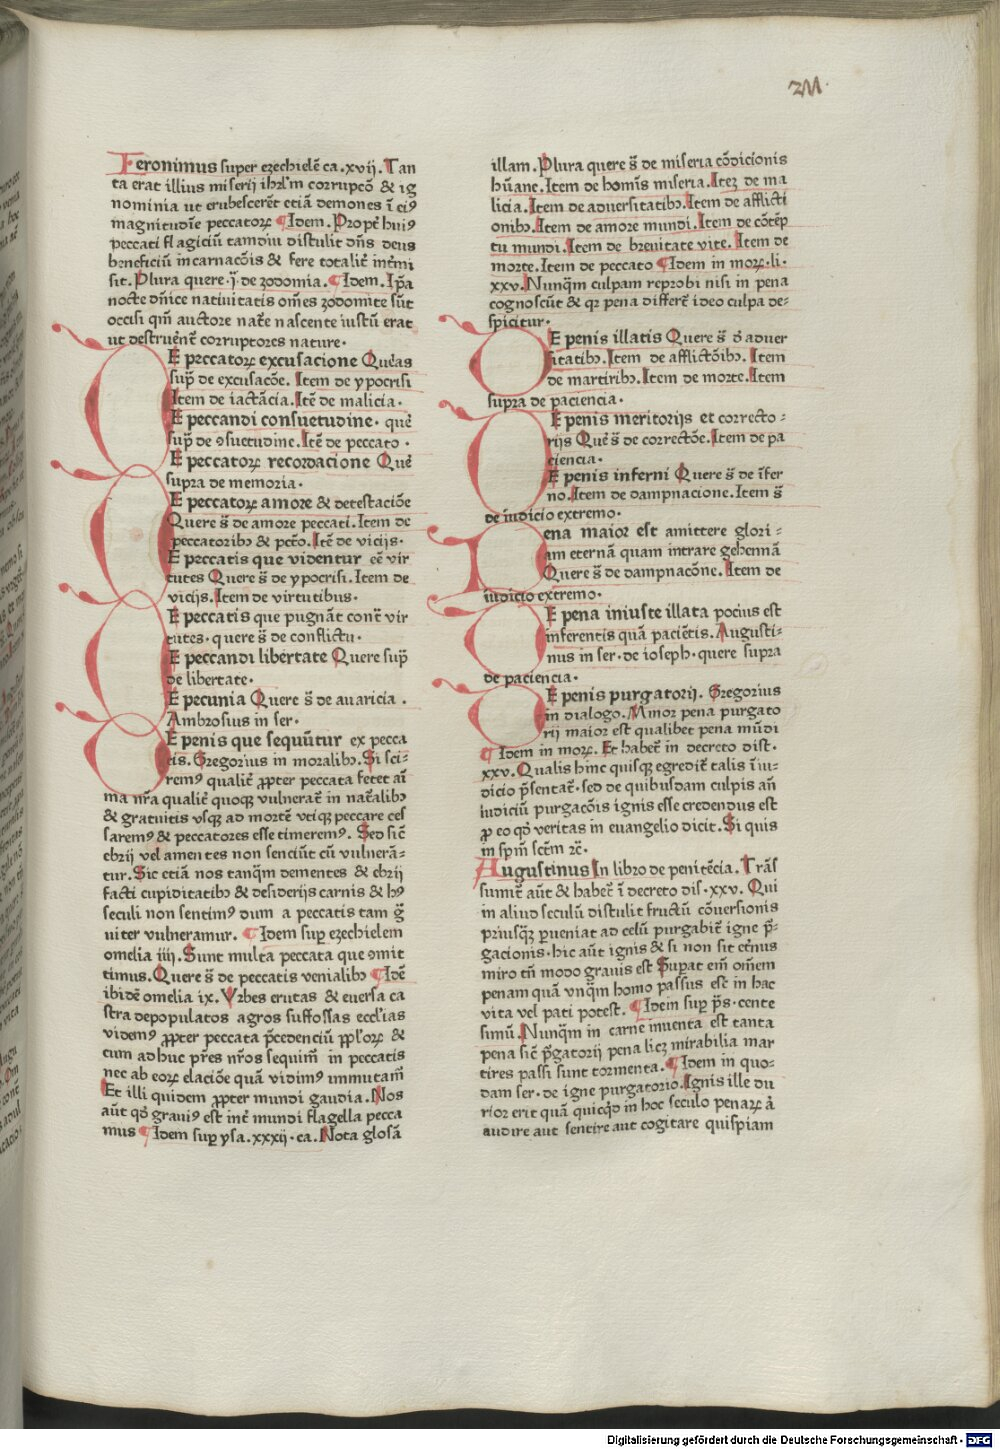 2M
Ieronimus super ezechielē ca.xvij. Tan
ta erat illius miserij ihrl'm corrupcō & ig
nominia ut erubescerēt etiā demones ī eiꝰ
magnitudīe peccatorꝝ ¶Idem. Propt̄ huiꝰ
peccati flagiciū tamdiu distulit dn̄s deus
beneficiū incarnacōis & fere totalit̄ int̄mi
sit. Plura quere. j̄. de zodomia. ¶Idem. Ip̄a
nocte dn̄ice natiuitatis om̄es zodomite sūt
occisi qm̄ auctore nat̄e nascente iustū erat
ut destruerent̄ corruptores nature.
DE peccatorꝝ excusacione Querās
sup̄ de excusacōe. Item de ypocrisi
Item de iactācia. Itē de malicia.
DE peccandi consuetudine. quer̄
sup̄ de ꝯsuetudine. Itē de peccato.
DE peccatorꝝ recordacione Quer̄
supra de memoria.
DE peccatorꝝ amore & detestaciōe
Quere s̄ de amore peccati. Item de
peccatoribꝫ & pctō. Itē de vicijs.
DE peccatis que videntur eē vir
tutes Quere s̄ de ypocrisi. Item de
vicijs. Item de virtutibus.
DE peccatis que pugnāt cont̄ vir
tutes. quere s̄ de conflictu.
DE peccandi libertate Quere sup̄
de libertate.
DE pecunia Quere s̄ de auaricia.
Ambrosius in ser.
DE penis que sequūtur ex pecca
tis. Gregorius in moralibꝫ. Si sci-
remꝰ qualit̄ ꝓpter peccata fetet aī
ma nr̄a qualit̄ quoqꝫ vulnerat̄ in nat̄alibꝫ
& gratuitis vsqꝫ ad mortē vtiqꝫ peccare ces
saremꝰ & peccatores esse timeremꝰ. Sed sic̄
ebrij vel amentes non senciūt cū vulnerā-
tur. Sic etiā nos tanqm̄ dementes & ebrij
facti cupiditatibꝫ & desiderijs carnis & hꝰ
seculi non sentimꝰ dum a peccatis tam ḡ
uiter vulneramur. ¶Idem sup̄ ezechielem
omelia iiij. Sunt multa peccata que ꝯmit
timus. Quere s̄ de peccatis venialibꝫ ¶Idē
ibidē omelia ix. Vrbes erutas & euersa ca
stra depopulatos agros suffossas eccl'ias
videmꝰ ꝓpter peccata p̄cedenciū ꝓpl'orꝝ &
cum adhuc pr̄es nr̄os sequim̄ in peccatis
nec ab eorꝝ elaciōe quā vidimꝰ immutam̄
Et illi quidem ꝓpter mundi gaudia. Nos
aūt qd̄ grauiꝰ est int̄ mundi flagella pecca
mus ¶Idem sup̄ ysa.xxxij.ca. Nota glosā
illam. Plura quere s̄ de miseria cōdicionis
hūane. Item de homīs miseria. Iteꝫ de ma
licia. Item de aduersitatibꝫ. Item de afflicti
onibꝫ. Item de amore mundi. Item de cōtēp
tu mundi. Item de breuitate vite. Item de
morte. Item de peccato ¶Idem in morꝝ.li.
xxv. Nunqm̄ culpam reprobi nisi in pena
cognoscūt & qr pena differt̄ ideo culpa de-
spicitur.
DE penis illatis Quere s̄ d̄ aduer
sitatibꝫ. Item de afflictōibꝫ. Item
de martiribꝫ. Item de morte. Item
supra de paciencia.
DE penis meritorijs et correcto-
rijs Quer̄ s̄ de correctōe. Item de pa
ciencia.
DE penis inferni Quere s̄ de īfer
no. Item de dampnacione. Item s̄
de iudicio extremo.
Pena maior est amittere glori-
am eternā quam intrare gehennā
Quere s̄ de dampnacōne. Item de
iudicio extremo.
DE pena iniuste illata pocius est
inferentis quā paciētis. Augusti-
nus in ser. de ioseph. quere supra
de paciencia.
DE penis purgatorij. Gregorius
in dialogo. Minor pena purgato
rij maior est qualibet pena mūdi
¶Idem in morꝝ. Et habet̄ in decreto dist.
xxv. Qualis hinc quisqꝫ egredit̄ talis ī iu-
dicio p̄sentat̄. sed de quibusdam culpis an̄
iudiciū purgacōis ignis esse credendus est
ꝓ eo qd̄ veritas in euangelio dicit. Si quis
in sp̄m sctm̄ ꝛc̄.
Augustinus In libro de penitēcia. Trās
sumit̄ aūt & habet̄ ī decreto dis.xxv. Qui
in aliud seculū distulit fructū cōuersionis
priusqꝫ ꝑueniat ad celū purgabit̄ igne p̄-
gacionis. hic aūt ignis & si non sit et̄nus
miro tn̄ modo grauis est Suꝑat em̄ om̄em
penam quā vnqm̄ homo passus est in hac
vita vel pati potest. ¶Idem sup̄ ps̄. cente
simū. Nunqm̄ in carne inuenta est tanta
pena sic̄ p̄gatorij pena licꝫ mirabilia mar
tires passi sunt tormenta. ¶Idem in quo-
dam ser. de igne purgatorio. Ignis ille du
rior erit quā quicqd̄ in hoc seculo penarꝝ aut
audire aut sentire aut cogitare quispiam
Digitalisierung gefördert durch die Deutsche Forschungsgemeinschaft - DFG